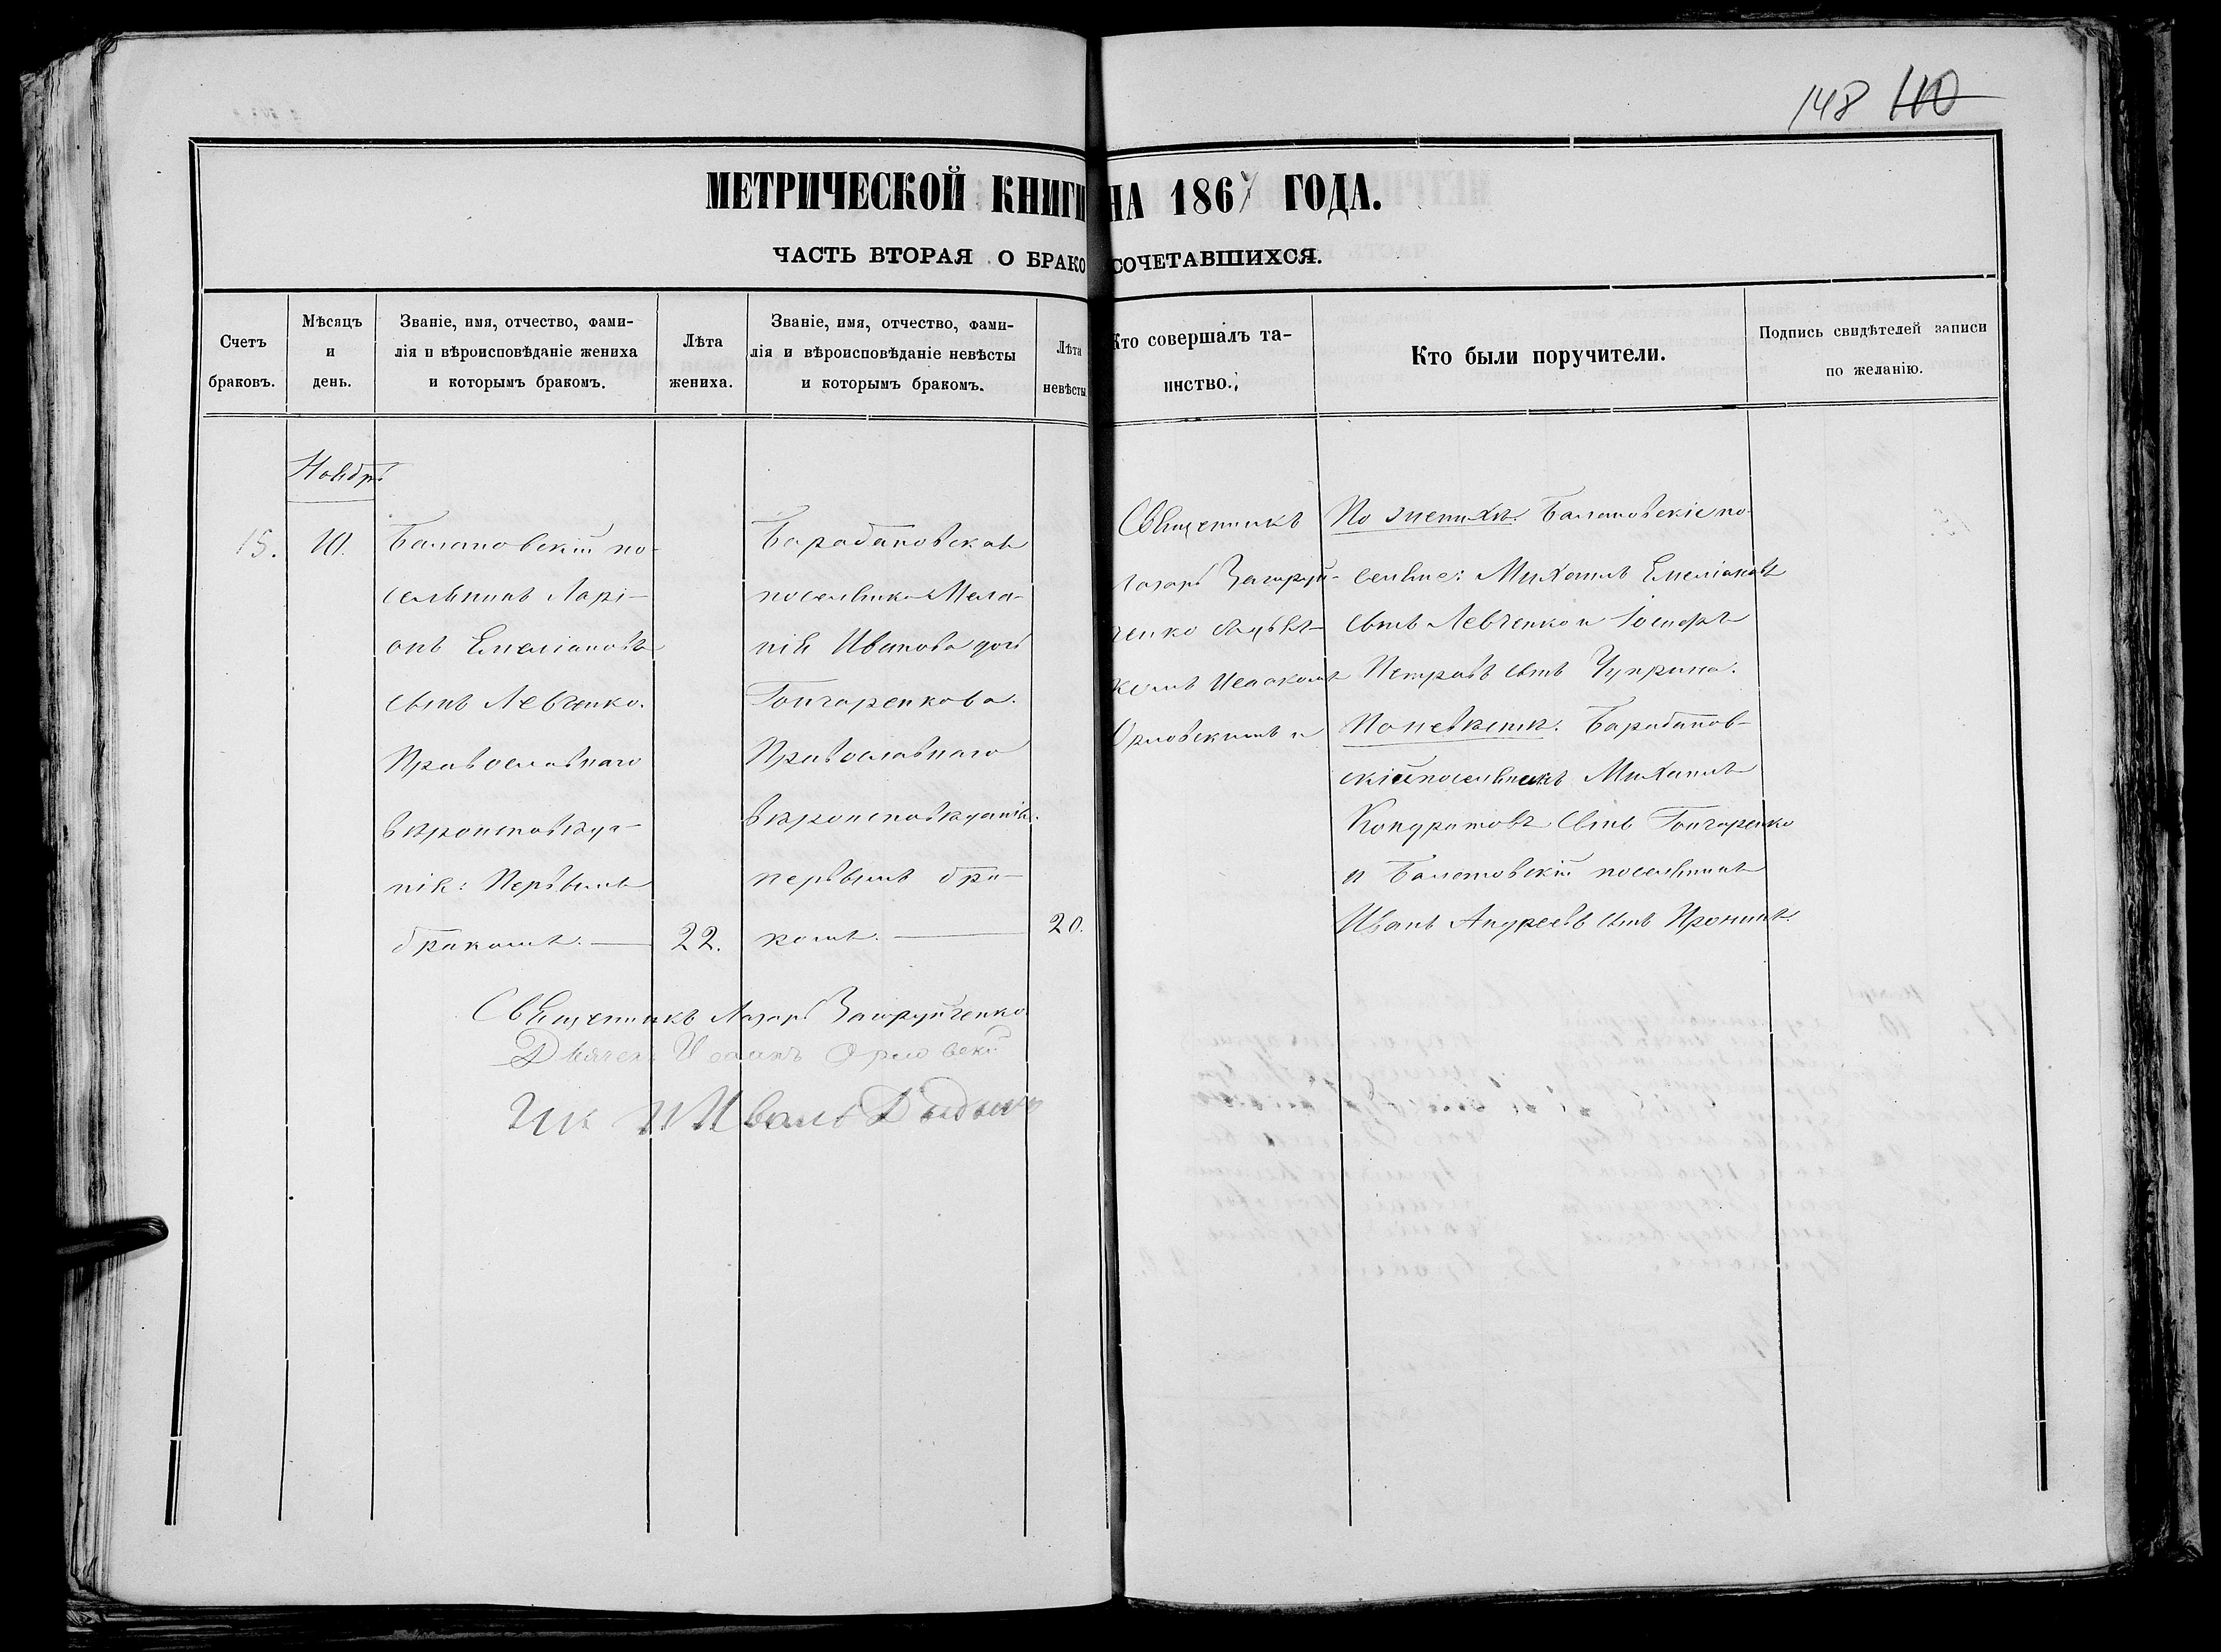 148 110
МЕТРИЧЕСКОЙ КНИГИ НА 1867 ГОДА.
ЧАСТЬ ВТОРАЯ О БРАКОСОЧЕТАВШИХСЯ.
Счетъ браковъ.
Мѣсяцъ и день.
Званіе, имя, отчество, фами-
лія и вѣроисповѣданіе жениха
и которымъ бракомъ.
Лѣта
жениха.
Званіе, имя, отчество, фами-
лія и вѣроисповѣданіе невѣсты
и которымъ бракомъ.
Лѣта
невѣсты
Кто совершалъ та-
инство.
Кто были поручители.
Подпись свидѣтелей записи
по желанію.
Ноябрь
15.
10.
поселянинъ Ларі-
онъ Емеліановъ
сынъ Левченко.
Православнаго
вѣроисповѣда-
нія: Первымъ
бракомъ.
22.
Барабановская
поселянка Мела-
нія Иванова дочь
Гончаренкова.
Православнаго
вѣроисповѣданія.
первымъ бра-
комъ.
20.
Священникъ
Лазарь Загоруй-
ченко съ
Исаакомъ
Орловскимъ и
По женихѣ: по-
селяне: Михаилъ Емеліановъ
сынъ Левченко и Іосифъ
Петровъ сынъ Чуприна.
По невѣстѣ: Барабанов-
скій поселянинъ Михаилъ
Кондратовъ сынъ Гончаренко
и поселянинъ
Иванъ Андреевъ сынъ
Священникъ Лазарь Загоруйченко
Дьячекъ Исаакъ Орловскій
Иванъ